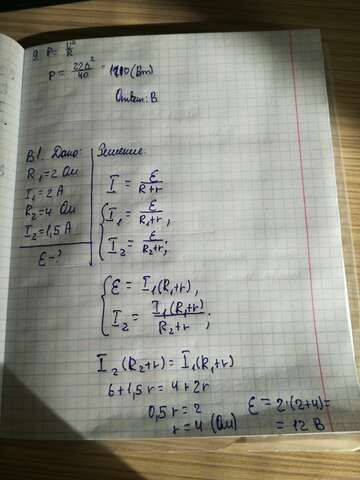 9. P = U²/R
P = 220²/40 = 1210 (Вт)
Ответ: В
В1. Дано:
R₁ = 2 Ом
I₁ = 2 А
R₂ = 4 Ом
I₂ = 1,5 А
ε - ?
Решение:
I = ε/(R+r)
{ I₁ = ε/(R₁+r),
I₂ = ε/(R₂+r);
{ ε = I₁(R₁+r),
I₂ = I₁(R₁+r)/(R₂+r);
I₂(R₂+r) = I₁(R₁+r)
6+1,5r = 4+2r
0,5r = 2
r = 4 (Ом)
ε = 2·(2+4) =
= 12 В